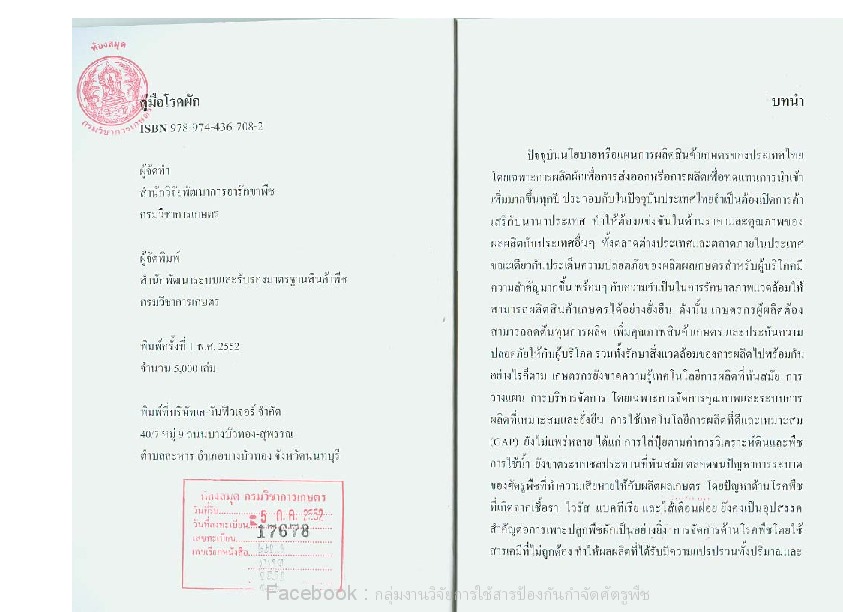 ห้องสมุด
กรมวิชาการเกษตร
คู่มือโรคผัก
ISBN 978-974-436-708-2
ผู้จัดทำ
สำนักวิจัยพัฒนาการอารักขาพืช
กรมวิชาการเกษตร
ผู้จัดพิมพ์
สำนักพัฒนาระบบและรับรองมาตรฐานสินค้าพืช
กรมวิชาการเกษตร
พิมพ์ครั้งที่ 1 พ.ศ. 2552
จำนวน 5,000 เล่ม
พิมพ์ที่บริษัทเค วันฟิวเจอร์ จำกัด
40/7 หมู่ 9 ถนนบางบัวทอง-สุพรรณ
ตำบลละหาร อำเภอบางบัวทอง จังหวัดนนทบุรี
ห้องสมุด กรมวิชาการเกษตร
วันที่รับ
- 5 ก.ค. 2552
วันที่ลงทะเบียน
เลขทะเบียน 17678
เลขเรียกหนังสือ
บทนำ
ปัจจุบันนโยบายหรือแผนการผลิตสินค้าเกษตรของประเทศไทย
โดยเฉพาะการผลิตผักเพื่อการส่งออกหรือการผลิตเพื่อทดแทนการนำเข้า
เพิ่มมากขึ้นทุกปี ประกอบกับในปัจจุบันประเทศไทยจำเป็นต้องเปิดการค้า
เสรีกับนานาประเทศ ทำให้ต้องแข่งขันในด้านราคาและคุณภาพของ
ผลผลิตกับประเทศอื่นๆ ทั้งตลาดต่างประเทศและตลาดภายในประเทศ
ขณะเดียวกันประเด็นความปลอดภัยของผลิตผลเกษตรสำหรับผู้บริโภคมี
ความสำคัญมากขึ้น พร้อมๆ กับความจำเป็นในการรักษาสภาพแวดล้อมให้
สามารถผลิตสินค้าเกษตรได้อย่างยั่งยืน ดังนั้น เกษตรกรผู้ผลิตต้อง
สามารถลดต้นทุนการผลิต เพิ่มคุณภาพสินค้าเกษตร และประกันความ
ปลอดภัยให้กับผู้บริโภค รวมทั้งรักษาสิ่งแวดล้อมของการผลิตไปพร้อมกัน
อย่างไรก็ตาม เกษตรกรยังขาดความรู้เทคโนโลยีการผลิตที่ทันสมัย การ
วางแผน การบริหารจัดการ โดยเฉพาะการจัดการคุณภาพและระบบการ
ผลิตที่เหมาะสมและยั่งยืน การใช้เทคโนโลยีการผลิตที่ดีและเหมาะสม
(GAP) ยังไม่แพร่หลาย ได้แก่ การใส่ปุ๋ยตามค่าการวิเคราะห์ดินและพืช
การใช้น้ำ ยังขาดระบบชลประทานที่ทันสมัย ตลอดจนปัญหาการระบาด
ของศัตรูพืชที่ทำความเสียหายให้กับผลิตผลเกษตร โดยปัญหาด้านโรคพืช
ที่เกิดจากเชื้อรา ไวรัส แบคทีเรีย และไส้เดือนฝอย ยังคงเป็นอุปสรรค
สำคัญต่อการเพาะปลูกพืชผักเป็นอย่างยิ่ง การจัดการด้านโรคพืชโดยใช้
สารเคมีที่ไม่ถูกต้อง ทำให้ผลผลิตที่ได้รับมีความแปรปรวนทั้งปริมาณและ
Facebook : กลุ่มงานวิจัยการใช้สารป้องกันกำจัดศัตรูพืช